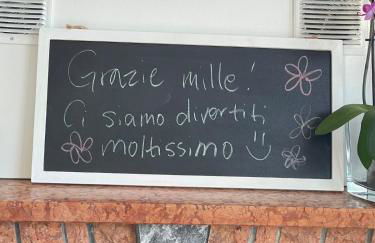 Grazie mille!
Ci siamo divertiti
moltissimo :)